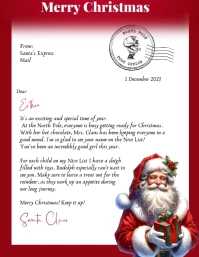 Merry Christmas
From:
Santa's Express
Mail
NORTH POLE
POST OFFICE
1 December 2021
Dear
Esther
It's an exciting and special time of year.
At the North Pole, everyone is busy getting ready for Christmas.
With her hot chocolate, Mrs. Claus has been keeping everyone in a
good mood. I'm so glad to see your name on the Nice List!
You've been an incredibly good girl this year.
For each child on my Nice List I have a sleigh
filled with toys. Rudolph especially can't wait to
see you. Make sure to leave a treat out for the
reindeer, as they work up an appetite during
our long journey.
Merry Christmas! Keep it up!
Santa Claus